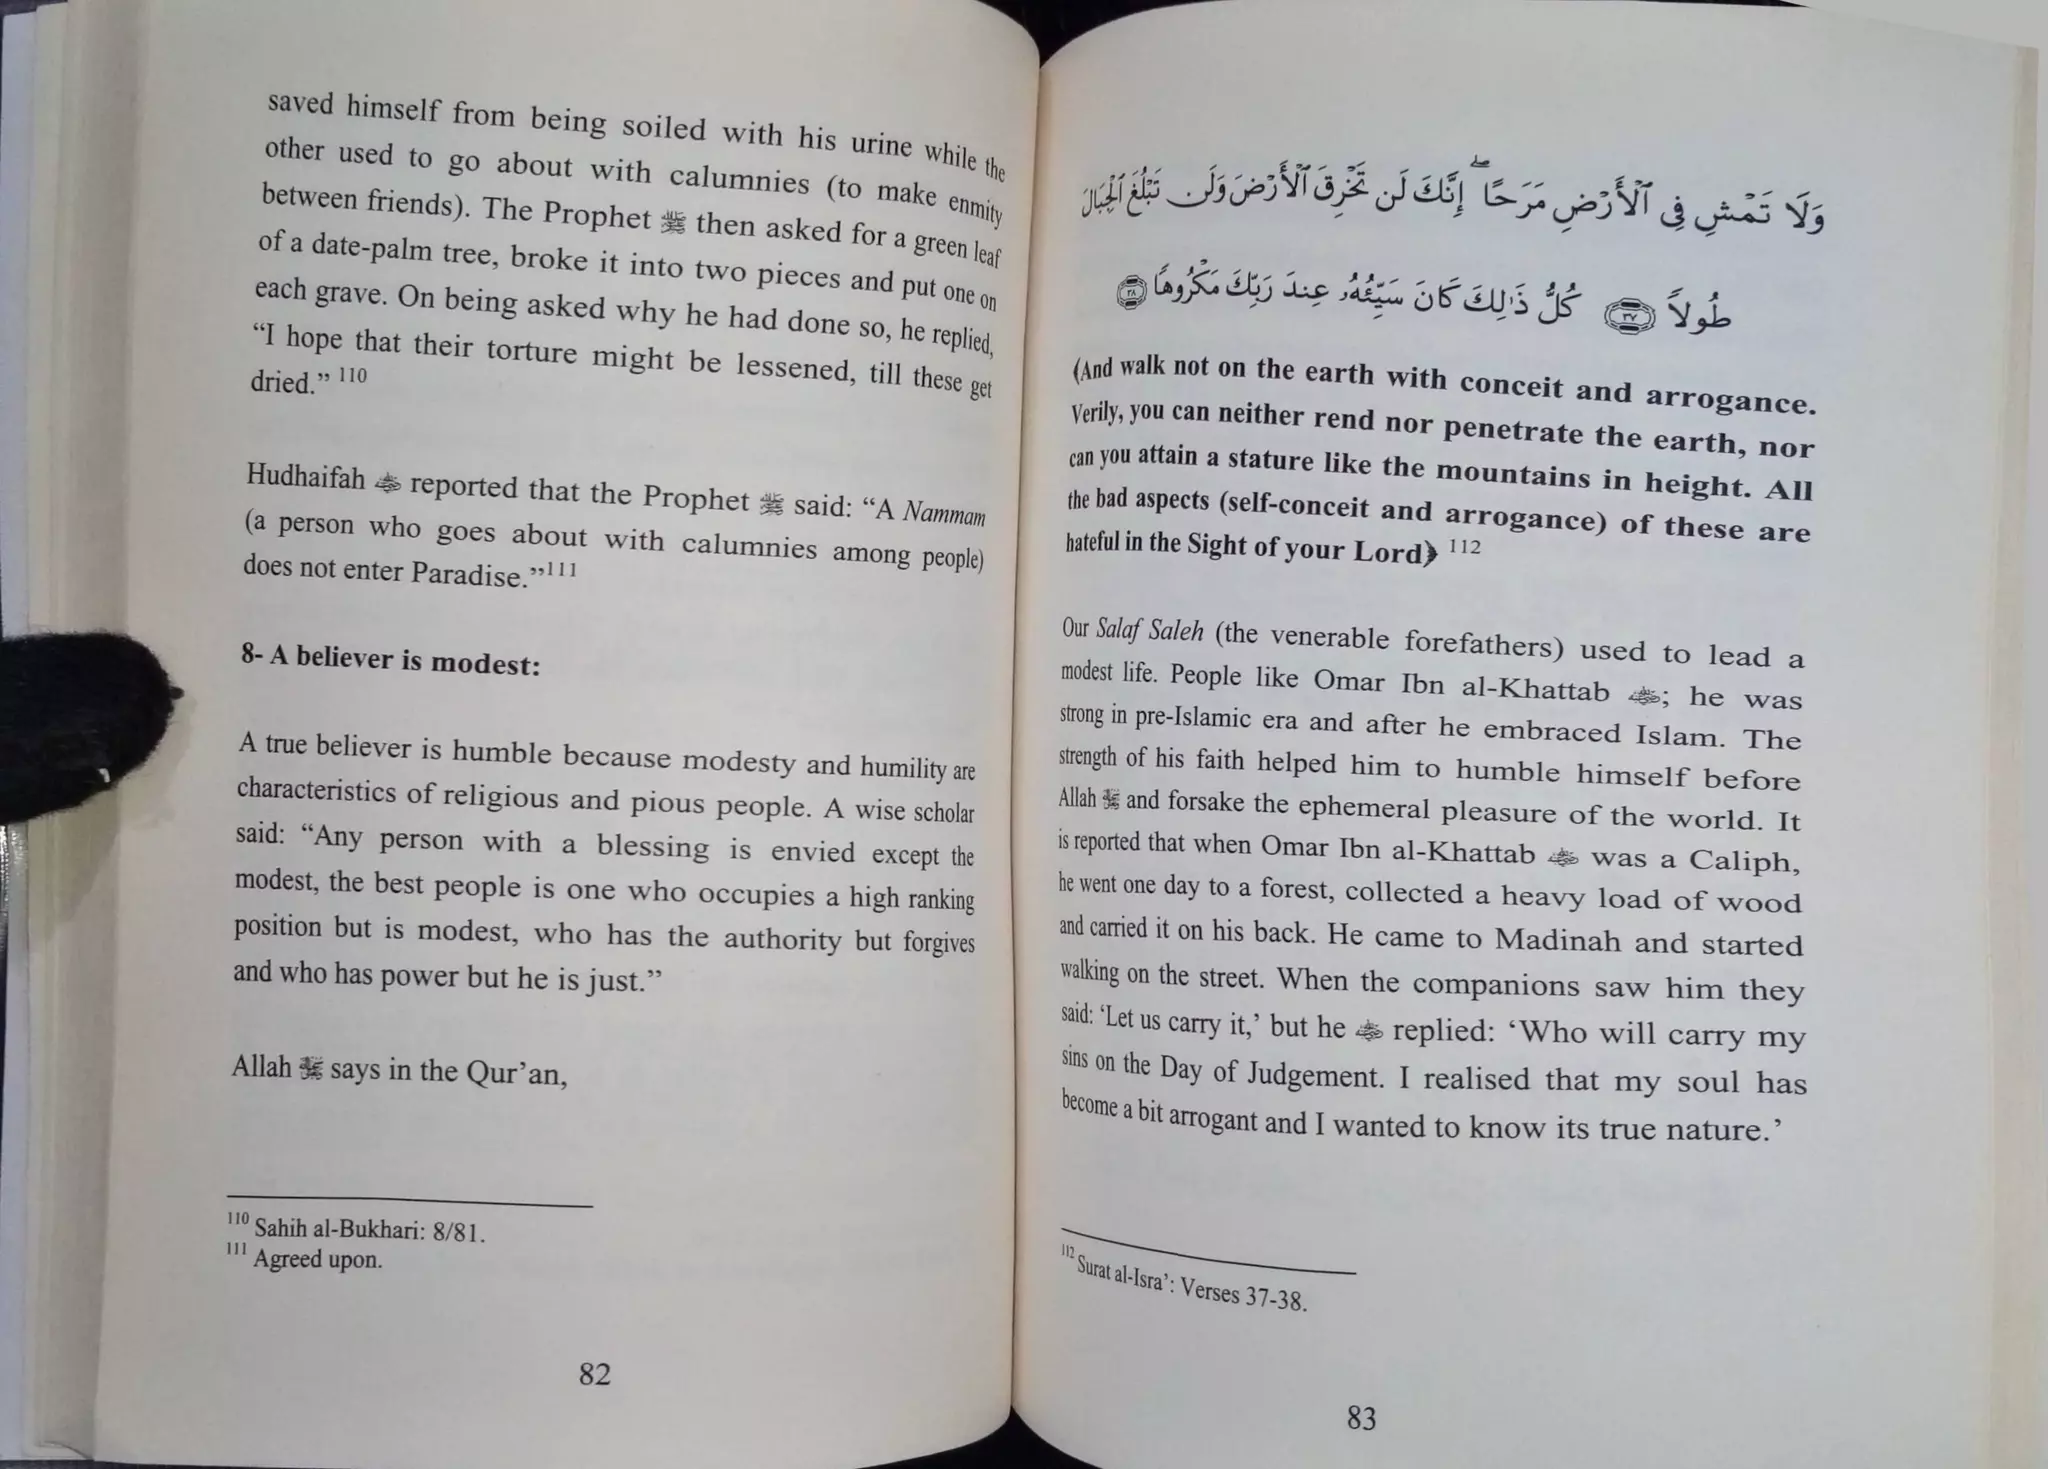 saved himself from being soiled with his urine while the
other used to go about with calumnies (to make enmity
between friends). The Prophet ﷺ then asked for a green leaf
of a date-palm tree, broke it into two pieces and put one on
each grave. On being asked why he had done so, he replied,
“I hope that their torture might be lessened, till these get
dried.” 110
Hudhaifah reported that the Prophet ﷺ said: “A Nammam
(a person who goes about with calumnies among people)
does not enter Paradise.”111
8- A believer is modest:
A true believer is humble because modesty and humility are
characteristics of religious and pious people. A wise scholar
said: “Any person with a blessing is envied except the
modest, the best people is one who occupies a high ranking
position but is modest, who has the authority but forgives
and who has power but he is just.”
Allah says in the Qur’an,
110 Sahih al-Bukhari: 8/81.
111 Agreed upon.
82
وَلَا تَمْشِ فِي ٱلْأَرْضِ مَرَحًا ۖ إِنَّكَ لَن تَخْرِقَ ٱلْأَرْضَ وَلَن تَبْلُغَ ٱلْجِبَالَ
طُولًا ٣٧ كُلُّ ذَٰلِكَ كَانَ سَيِّئُهُۥ عِندَ رَبِّكَ مَكْرُوهًا ٣٨
﴾And walk not on the earth with conceit and arrogance.
Verily, you can neither rend nor penetrate the earth, nor
can you attain a stature like the mountains in height. All
the bad aspects (self-conceit and arrogance) of these are
hateful in the Sight of your Lord﴿ 112
Our Salaf Saleh (the venerable forefathers) used to lead a
modest life. People like Omar Ibn al-Khattab ; he was
strong in pre-Islamic era and after he embraced Islam. The
strength of his faith helped him to humble himself before
Allah and forsake the ephemeral pleasure of the world. It
is reported that when Omar Ibn al-Khattab was a Caliph,
he went one day to a forest, collected a heavy load of wood
and carried it on his back. He came to Madinah and started
walking on the street. When the companions saw him they
said: ‘Let us carry it,’ but he replied: ‘Who will carry my
sins on the Day of Judgement. I realised that my soul has
become a bit arrogant and I wanted to know its true nature.’
112 Surat al-Isra’: Verses 37-38.
83